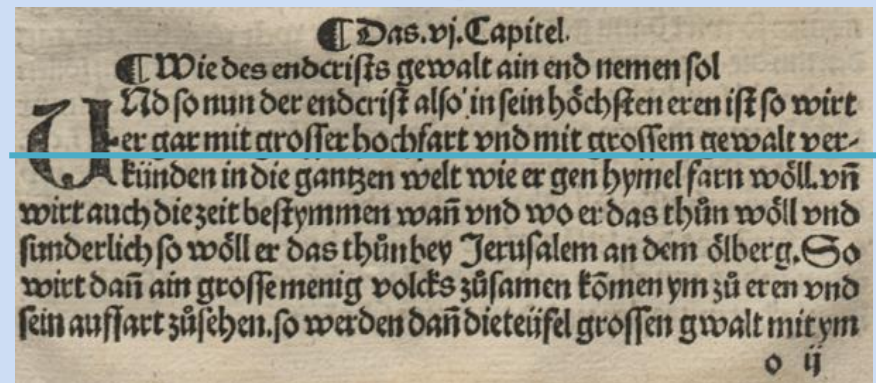 ¶ Das.vj.Capitel.
¶ Wie des endcrists gewalt ain end nemen sol
UNd so nun der endcrist also in sein höchsten eren ist so wirt
er gar mit grosser hochfart vnd mit grossem gewalt ver-
künden in die gantzen welt wie er gen hymel farn wöll. vñ
wirt auch die zeit bestymmen wañ vnd wo er das thůn wöll vnd
sunderlich so wöll er das thůn bey Jerusalem an dem ölberg. So
wirt dañ ain grosse menig volcks zůsamen kōmen ym zů eren vnd
sein auffart zůsehen. so werden dañ die teüfel grossen gwalt mit ym
o ij